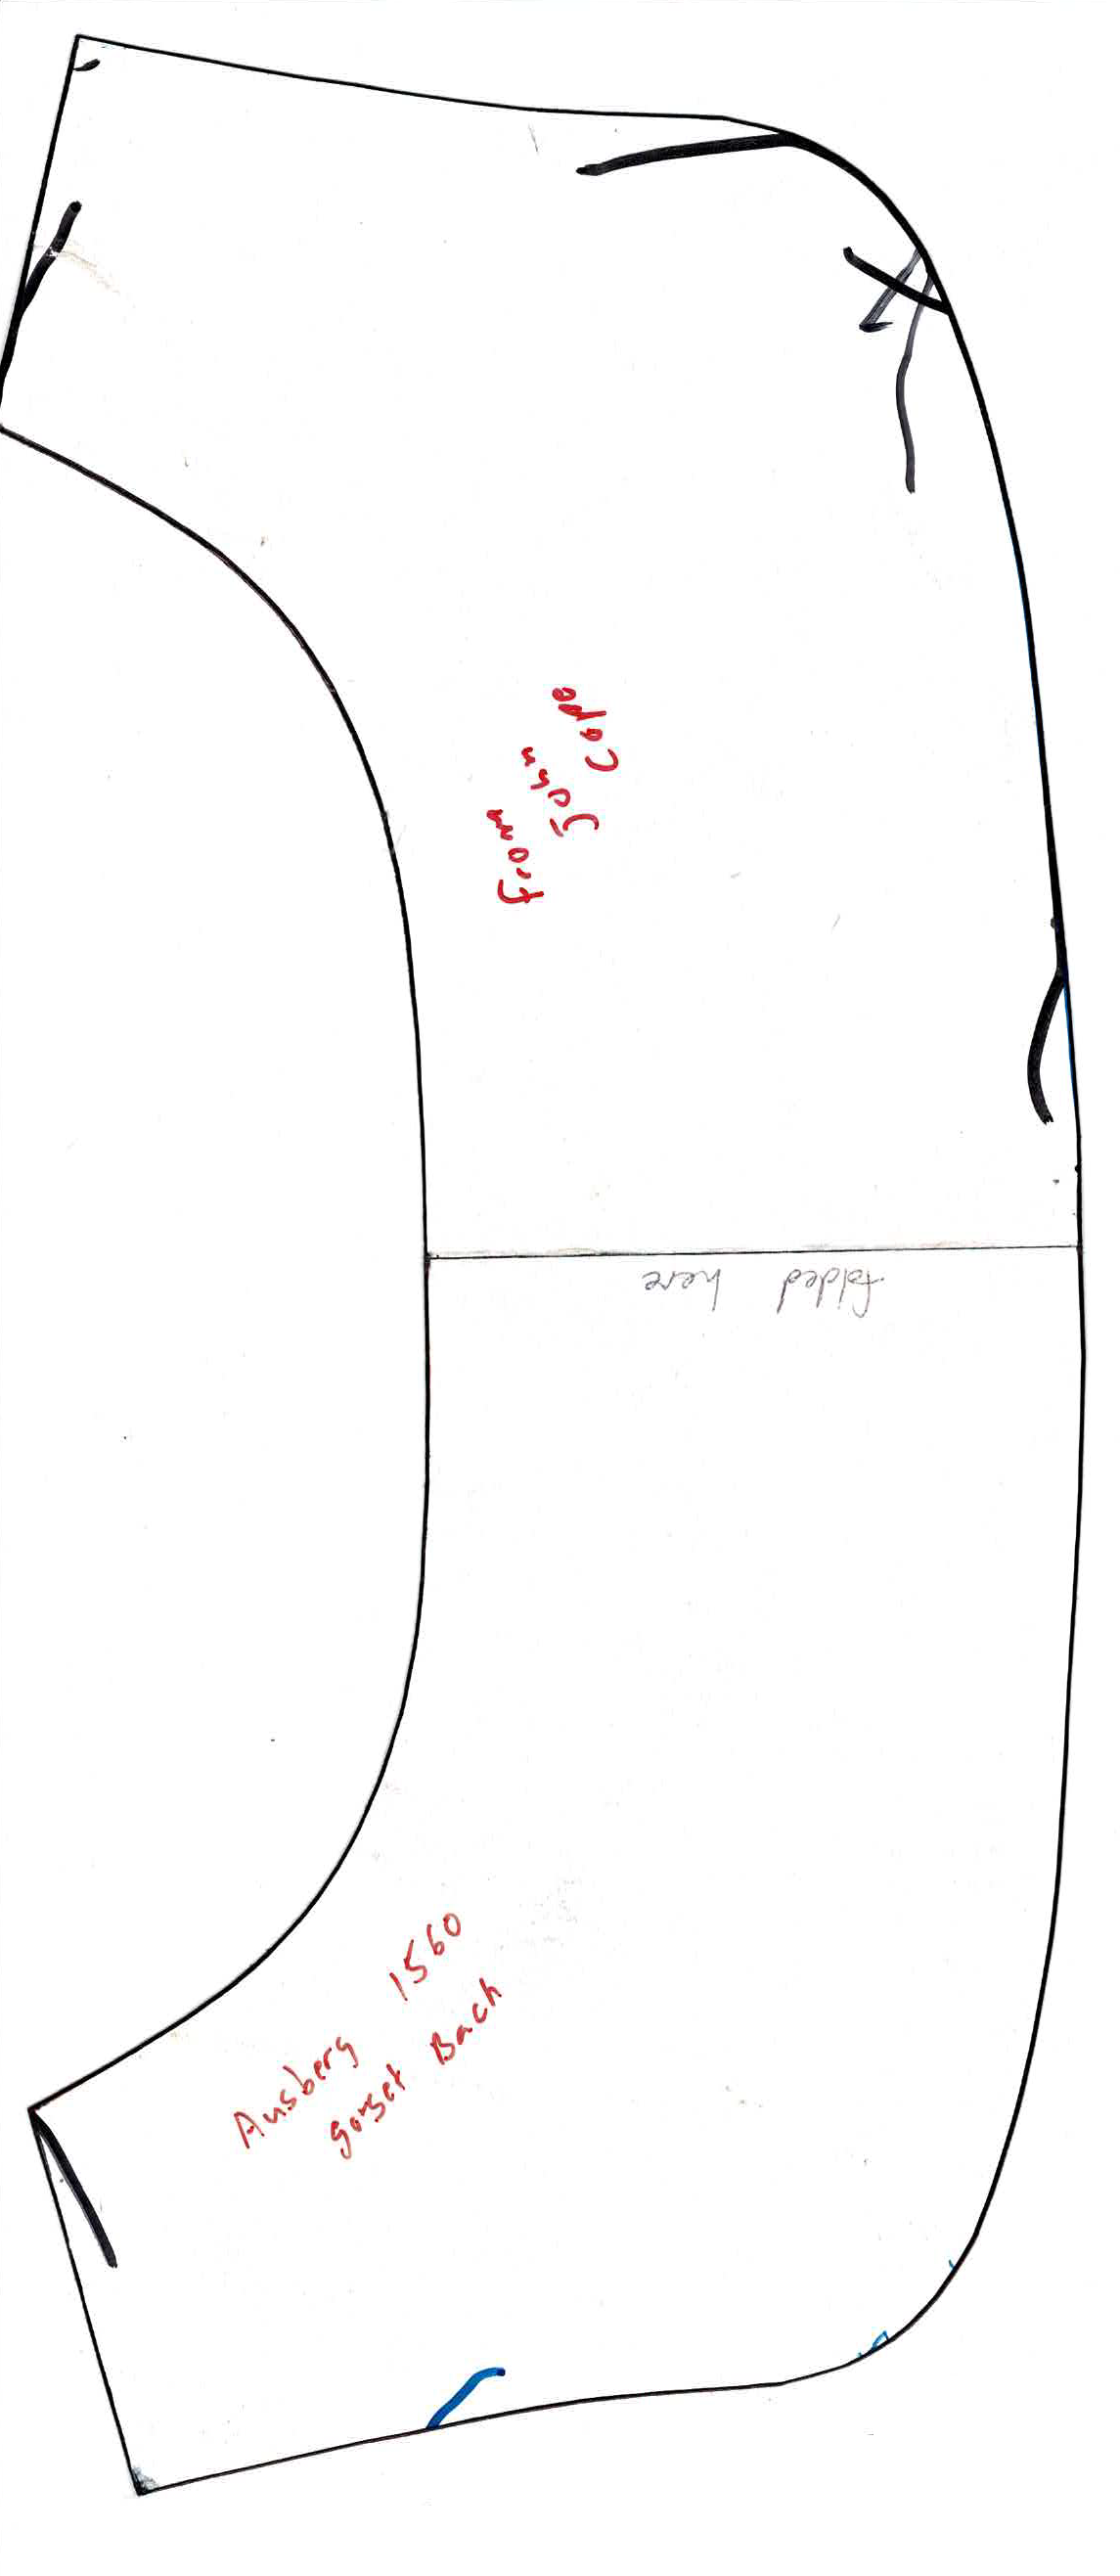 From
John
Cope
folded here
Ausberg 1560
gorget Back